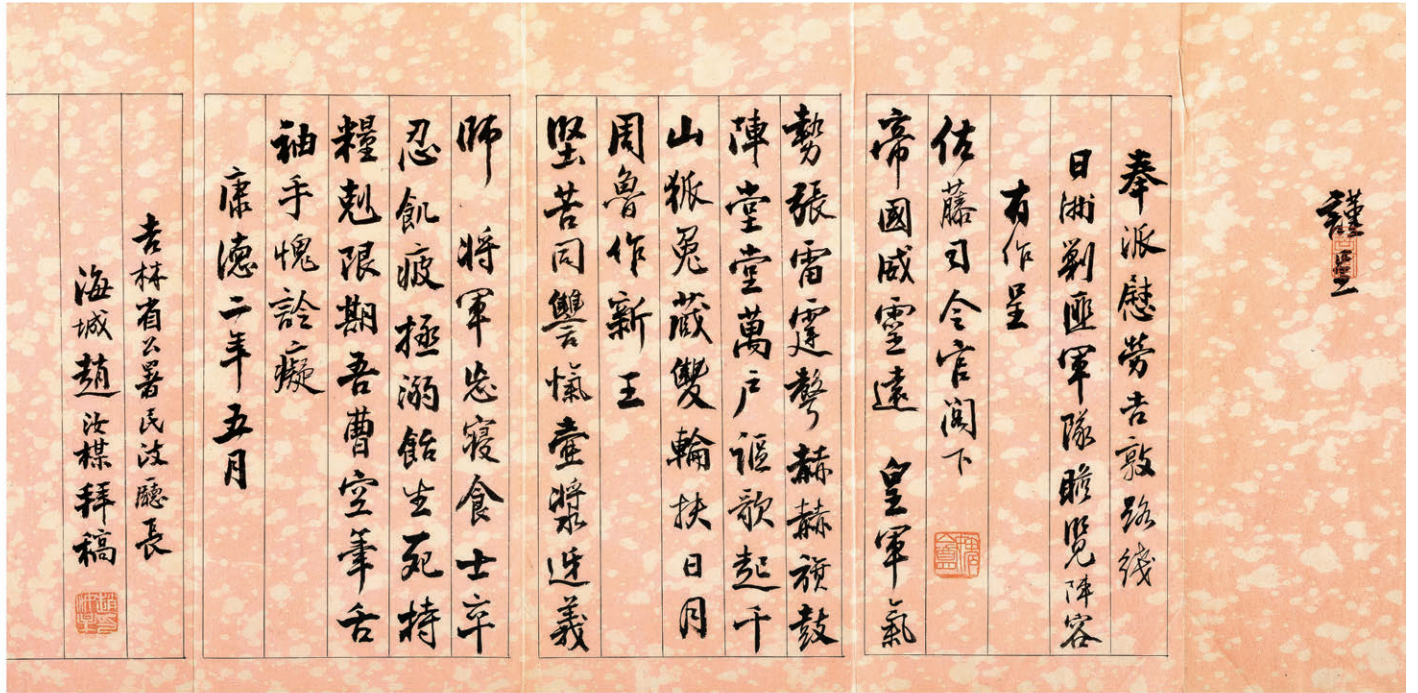 謹呈
奉派慰勞吉敦路綫
日滿剿匪軍隊瞻覽陣容
有作呈
佐藤司令官閣下
帝國威靈遠　皇軍氣
勢張雷霆聲赫赫旗鼓
陣堂堂萬戶謳歌起千
山狐兔藏雙輪扶日月
周魯作新王
堅苦同讐愾壺漿迓義
師　將軍忘寢食士卒
忍飢疲拯溺飴生死持
糧剋限期吾曹空筆舌
袖手愧詅癡
康德二年五月
吉林省公署民政廳長
海城趙汝楳拜稿